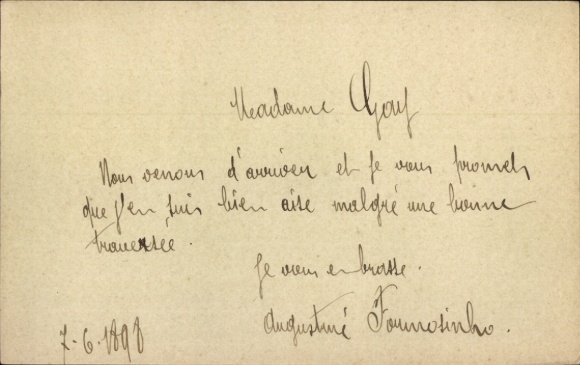 Madame Gay
Nous venons d'arriver et je vous promets
que j'en suis bien aise malgré une bonne
traversée.
Je vous embrasse.
Augustine Formosinho.
7-6-1898